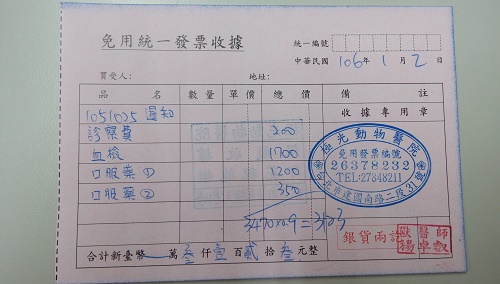 免用統一發票收據
統一編號
中華民國 106 年 1 月 2 日
買受人： 地址：
品名 數量 單價 總價 備註
1051025 通知 收據專用章
診察費 200
血檢 1700
口服藥① 1200
口服藥② 350
極光動物醫院
免用發票編號
26378232
TEL:27848211
台北市建國南路二段31號
3470×0.9=3103
銀貨兩訖
合計新臺幣 萬叁仟壹百貳拾叁元整